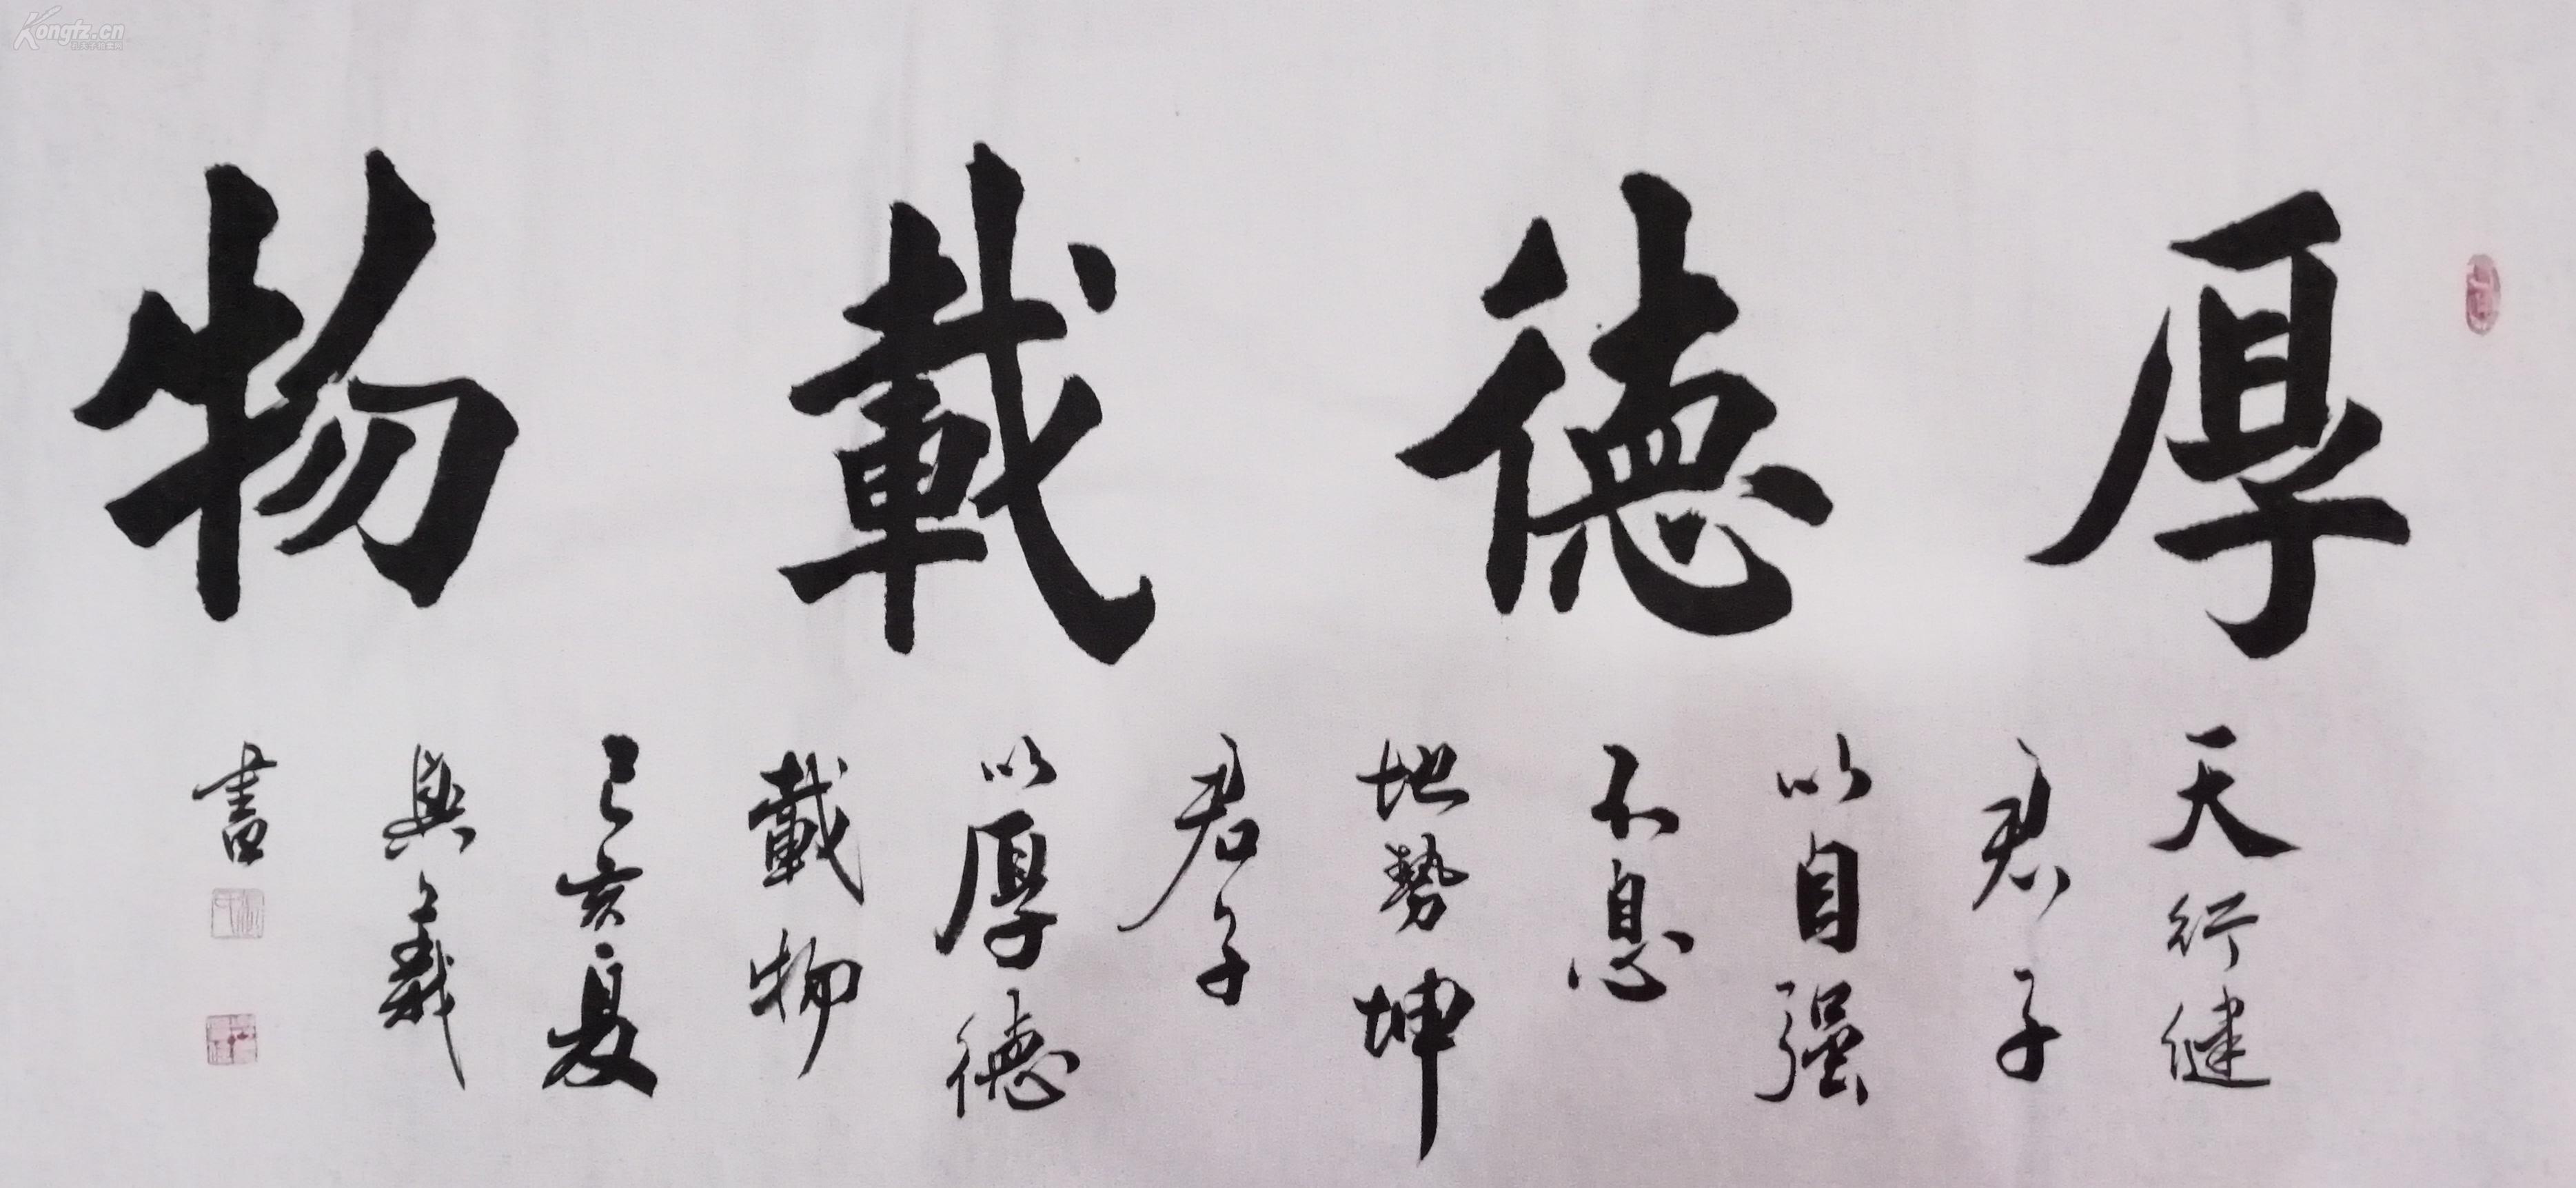 厚德載物
天行健
君子
以自强
不息
地勢坤
君子
以厚德
載物
己亥夏
興義
書
Kongfz.cn